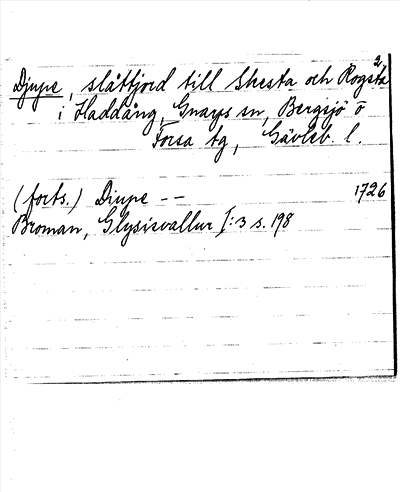 2.
Djupe, slåttjord till Skesta och Rogsta
i Haddång, Gnarps sn, Bergsjö o
Forsa tg, Gävleb. l.
(forts.) Diupe -- 1726
Broman, Glysisvallur I:3 s. 198